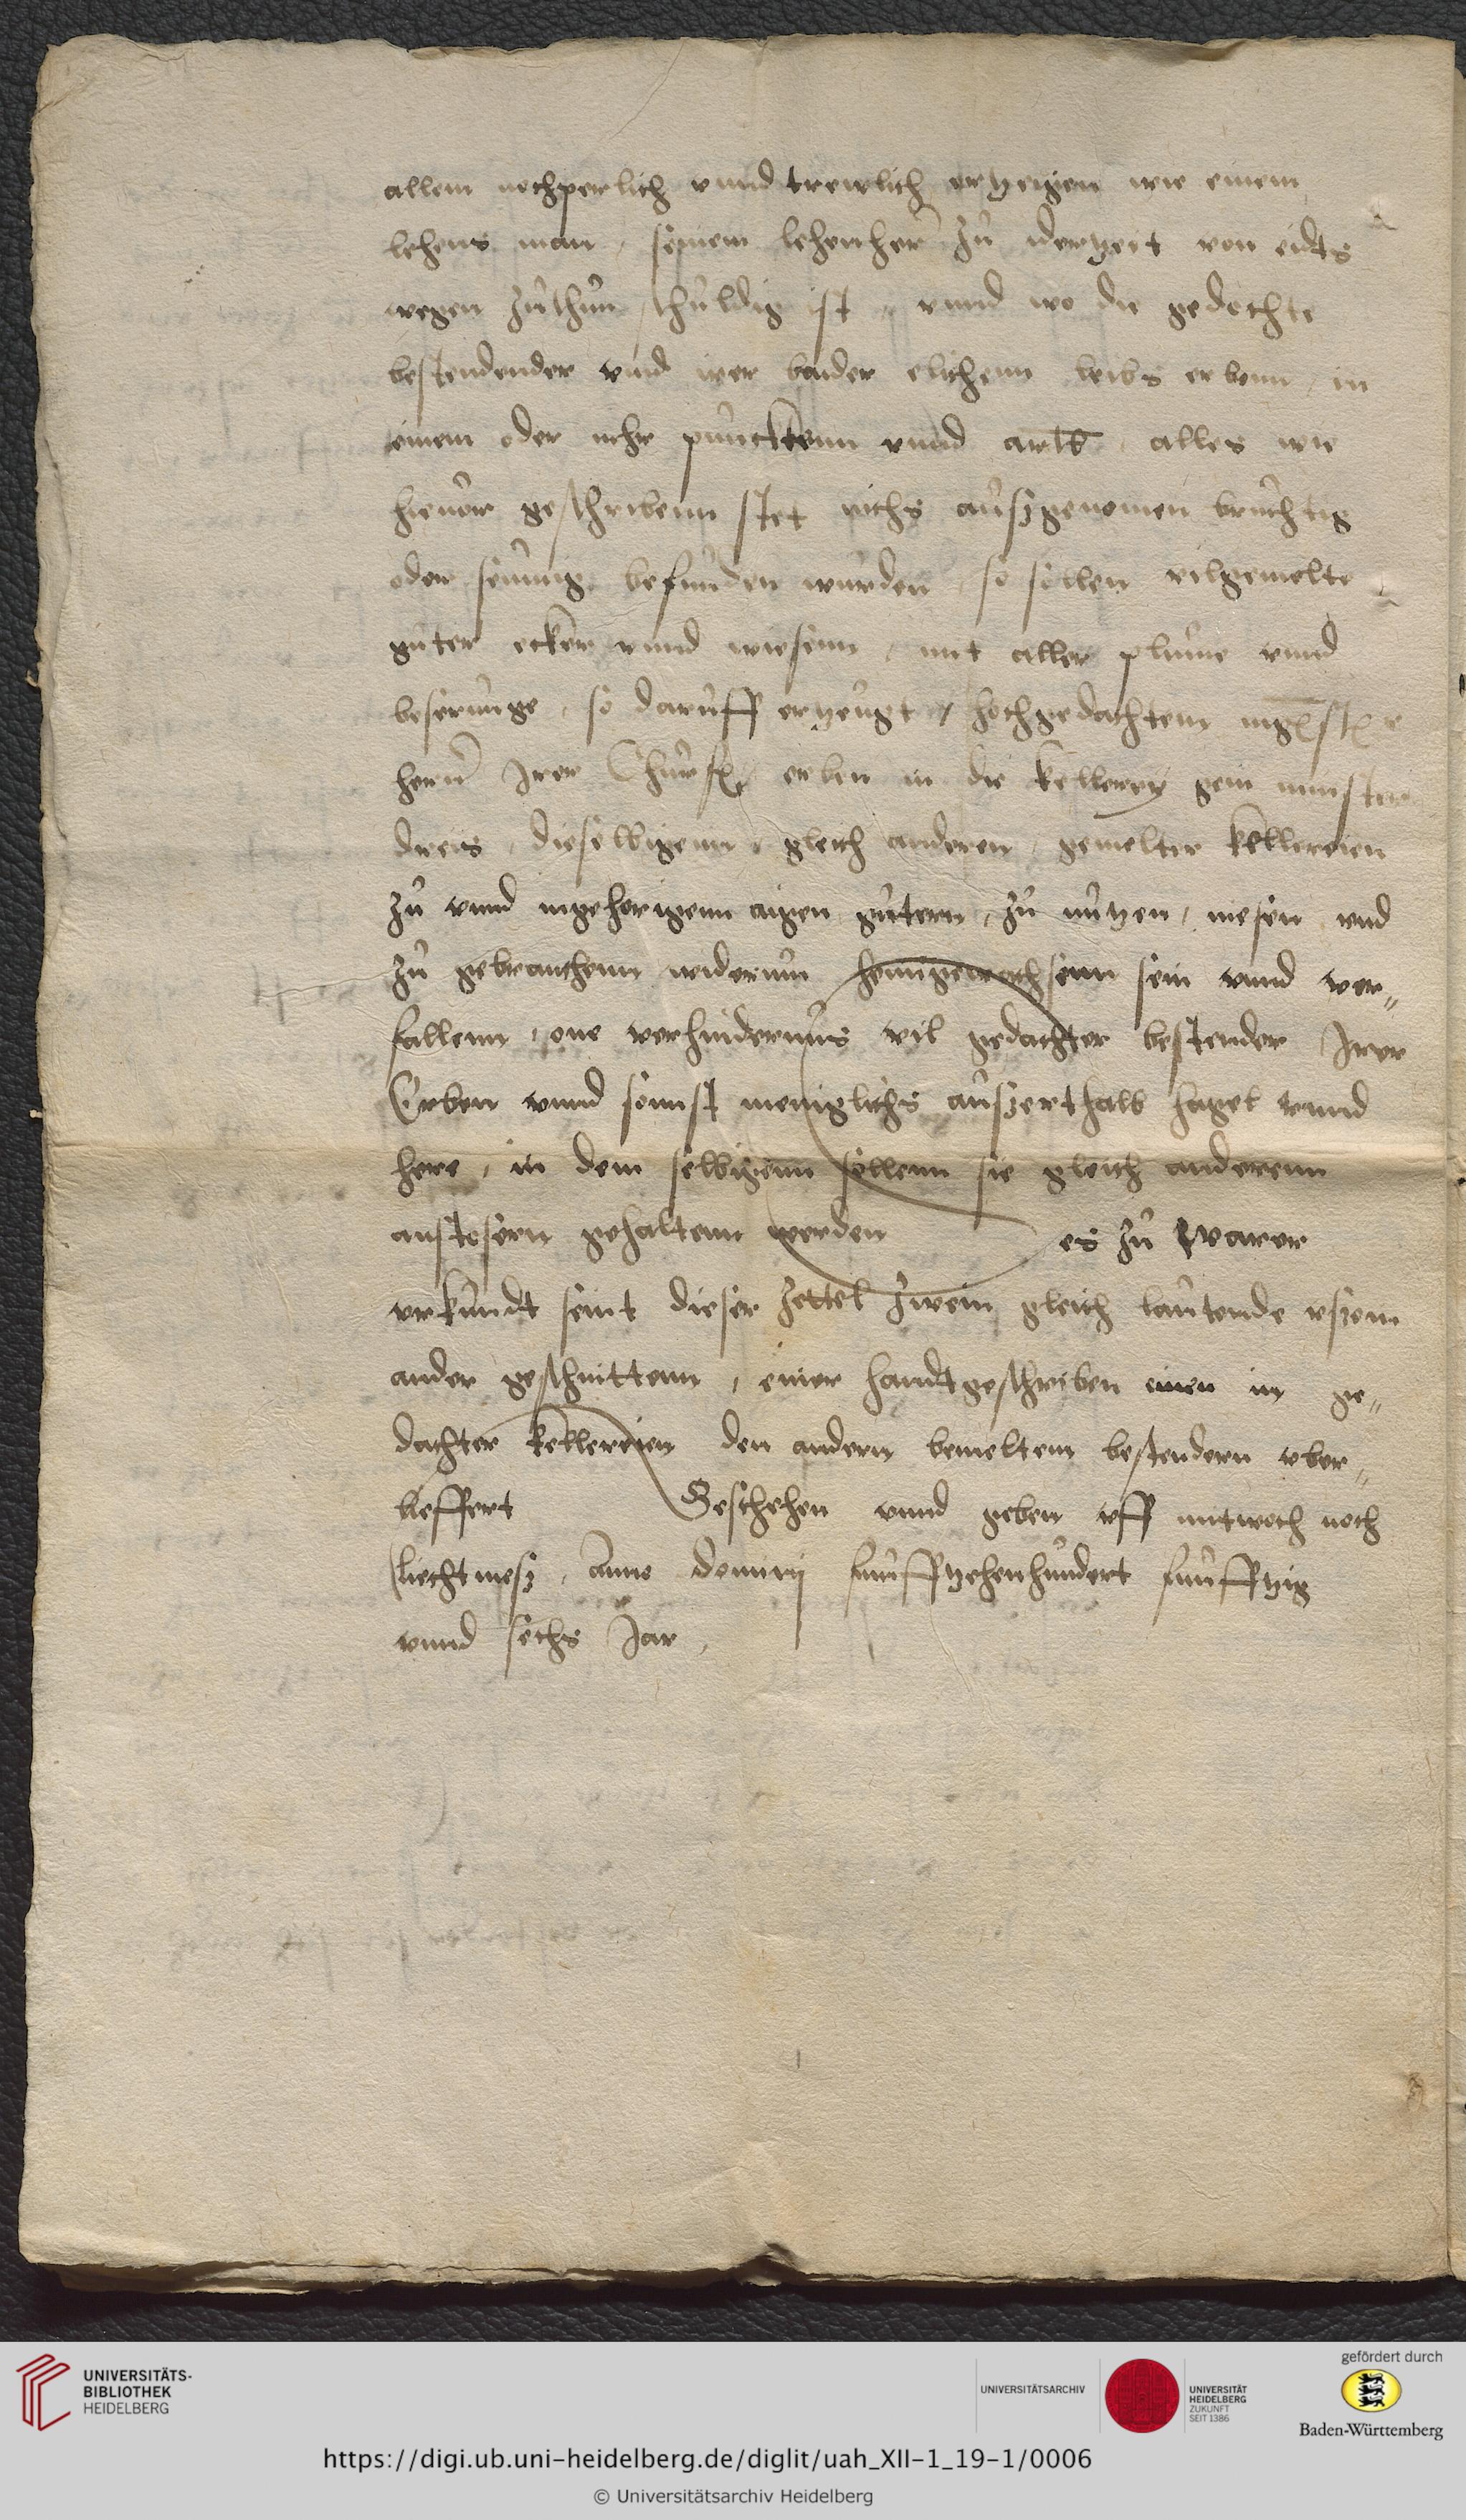 allem nochperlich vnnd trewlich ertzeigen wie einem
lehens man, seinem lehenherr zu iderzeit von eidts
wegen zuthun schuldig ist, vnnd wo die gedochte
bestendender vnd irer beider elichenn leibs erbenn, in
einem oder mehr punctkenn vnnd artl, alles wie
hieuor geschribenn stet nichs auszgenomen bruchtig
oder seumig befunden wurden, so sollen vilgemelte
guter ecker vnnd wiesenn, mit aller plume vnnd
beserunge, so daruff ertzeugt, hochgedachtem mgst
hern Irer Churf erben in die kellerey gein munster
dreis, dieselbigenn, gleich anderen, gemelter kellereien
zu vnnd ingehorigenn eigen gutern, zu nutzen, niesen vnd
zu gebrauchenn widerum heimgewachsenn sein vnnd ver„
fallenn, one verhindernus vil gedachter bestender Irer
Erben vnnd sonnst meniglichs auszerthalb hagel vnnd
here, in dem selbigenn sollenn sie gleich anderenn
anstosern gehaltenn werden es zu warer
vrkundt seint dieser zettel zwein gleich lautende vszein
ander geschnittenn, einer handtgeschriben einen in ge„
dachter kellereien den andern bemeltem bestendern vber„
lieffert Geschehen vnnd geben vff mitwoch noch
liechtmesz, Anno dominij funfftzehenhundert funfftzig
vnnd sechs Jar,
UNIVERSITÄTS-
BIBLIOTHEK
HEIDELBERG
UNIVERSITÄTSARCHIV
UNIVERSITÄT
HEIDELBERG
ZUKUNFT
SEIT 1386
gefördert durch
Baden-Württemberg
https://digi.ub.uni-heidelberg.de/diglit/uah_XII-1_19-1/0006
© Universitätsarchiv Heidelberg